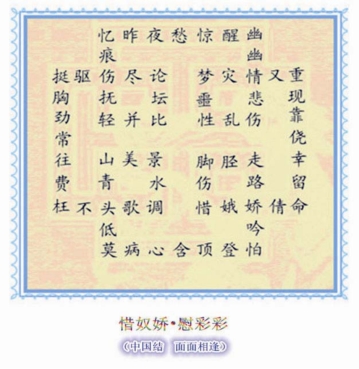 忆 昨 夜 愁 惊 醒 幽
痕 幽
挺 驱 伤 尽 论 梦 灾 情 又 重
胸 抚 坛 噩 悲 现
劲 轻 并 比 性 乱 伤 靠
常 侥
往 山 美 景 脚 胫 走 幸
费 青 水 伤 路 留
枉 不 头 歌 调 惜 娥 娇 倩 命
低 吟
莫 病 心 含 顶 登 怕
惜奴娇•慰彩彩
（中国结 面面相逢）